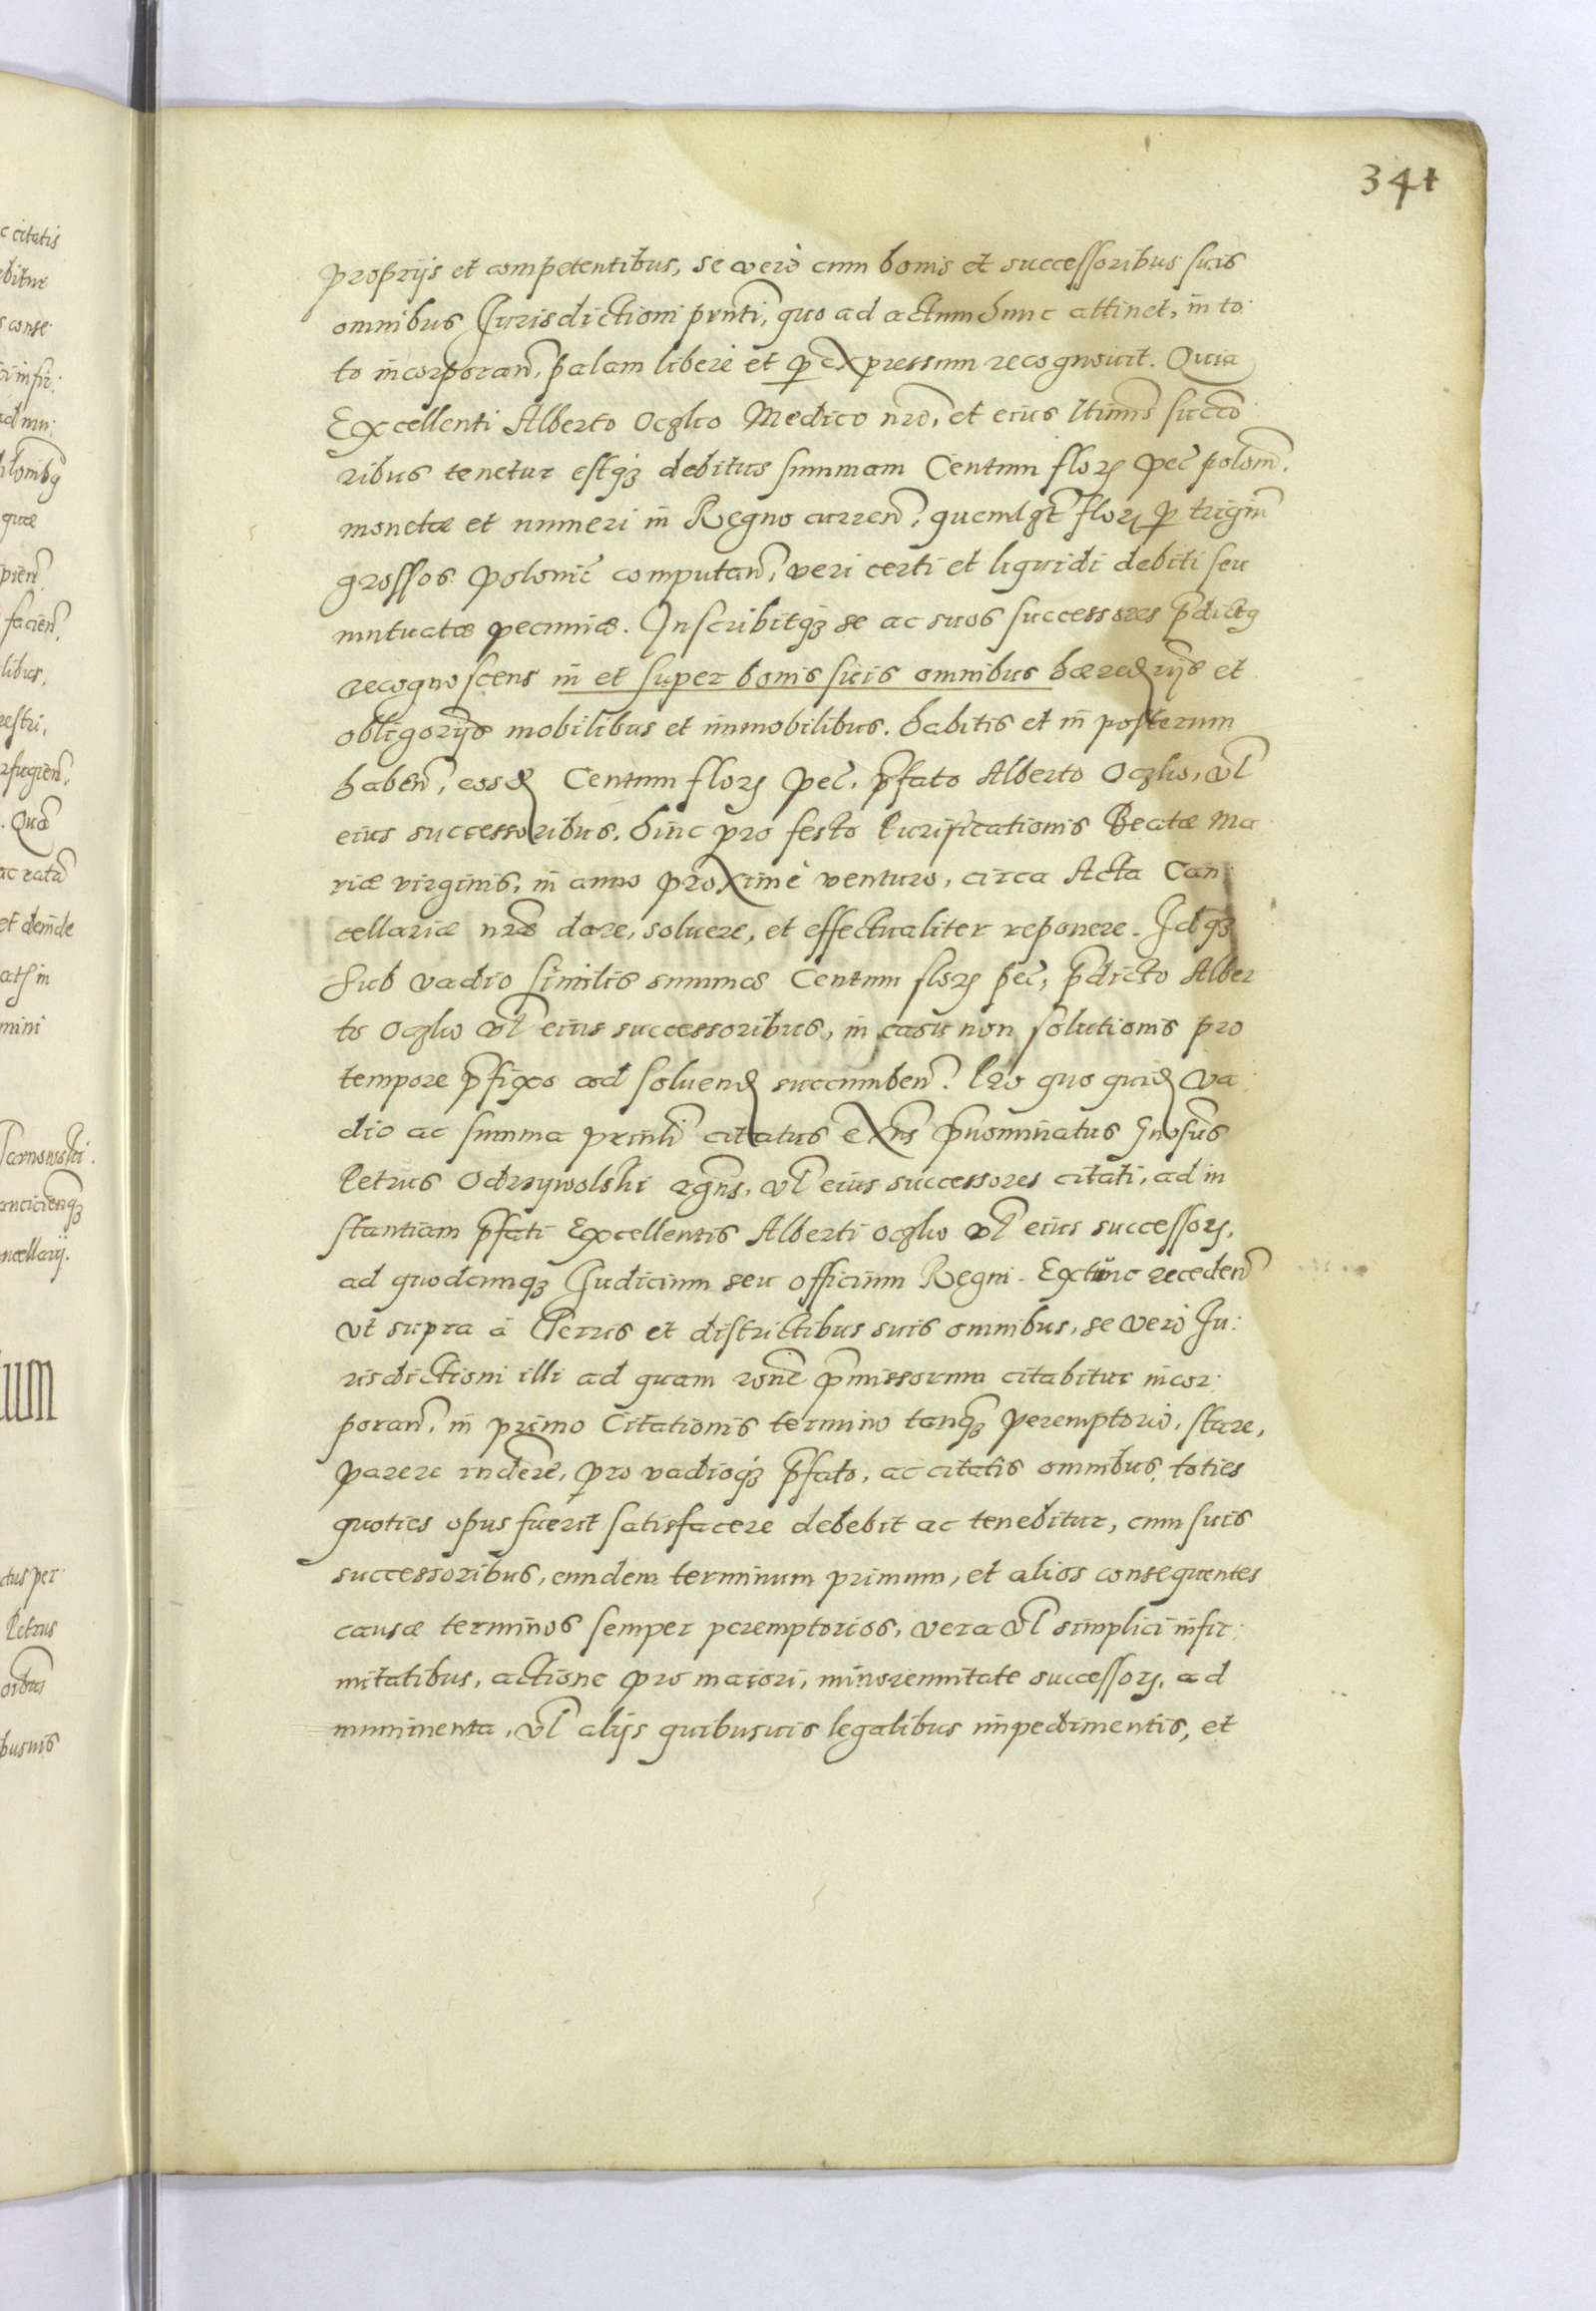 341
proprijs et competentibus, se verò cum bonis et successoribus suis
omnibus Jurisdictioni prnti, quo ad actum hunc attinet, in to
to incorporan, palam liberè et p expressum recognovit. Quia
Excellenti Alberto Oczko Medico nro, et eius ltimis succo
ribus tenetur estq3 debitus summam Centum flor pec polon.
monetæ et numeri in Regno curren, quemlqt flor p trigin
grossos polonic computan, veri certi et liquidi debiti seu
mutuatæ pecuniæ. Inscribitq3 se ac suos successores pdictos
recognoscens in et super bonis suis omnibus hæredrijs et
obligorijs mobilibus et immobilibus. habitis et in posterum
haben, eosd Centum flor pec. pfato Alberto Oczko, vl
eius successoribus. hinc pro festo Purificationis Beatæ Ma
riæ virginis, in anno proximè venturo, circa Acta Can
cellariæ nræ dare, soluere, et effectualiter reponere. Idq3
sub vadio similis summæ Centum flor pec, pdicto Alber
to Oczko vl eius successoribus, in casu non solutionis pro
tempore pfixo ad soluend succumben. Pro quo quid va
dio ac summa prinli citatus exns pnominatus Gnosus
Petrus Odrzywolski rgns, vl eius successores citati, ad in
stantiam pfati Excellentis Alberti Oczko vl eius successor,
ad quodcunq3 Judicium seu officium Regni. Extunc receden
vt supra à Terris et districtibus suis omnibus, se verò Ju:
risdictioni illi ad quam rone pmissorum citabitur incor:
poran, in primo Citationis termino tanq3 peremptorio, stare,
parere indere, pro vadioq3 pfato, ac citatis omnibus, toties
quoties opus fuerit satisfacere debebit ac tenebitur, cum suis
successoribus, eundem terminum primum, et alios consequentes
causæ terminos semper peremptorios, vera vl simplici infir:
mitatibus, actione pro maiori, minorennitate successor, ad
munimenta, vl alijs quibusuis legalibus impedimentis, et